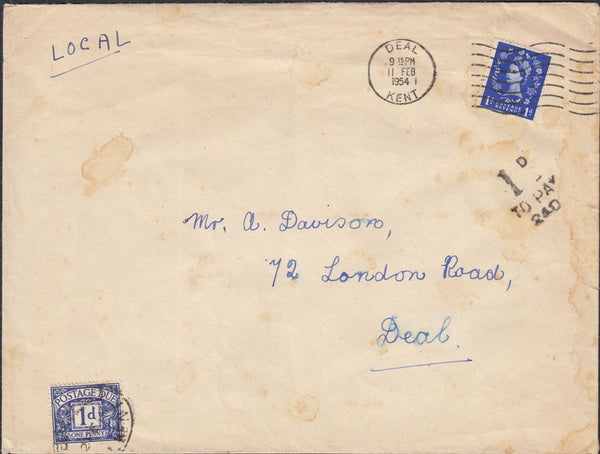 LOCAL
DEAL
9 15 PM
11 FEB
1954
KENT
POSTAGE
REVENUE
1D
TO PAY
24D
Mr. A. Davison,
72 London Road,
Deal.
POSTAGE DUE
1d
ONE PENNY